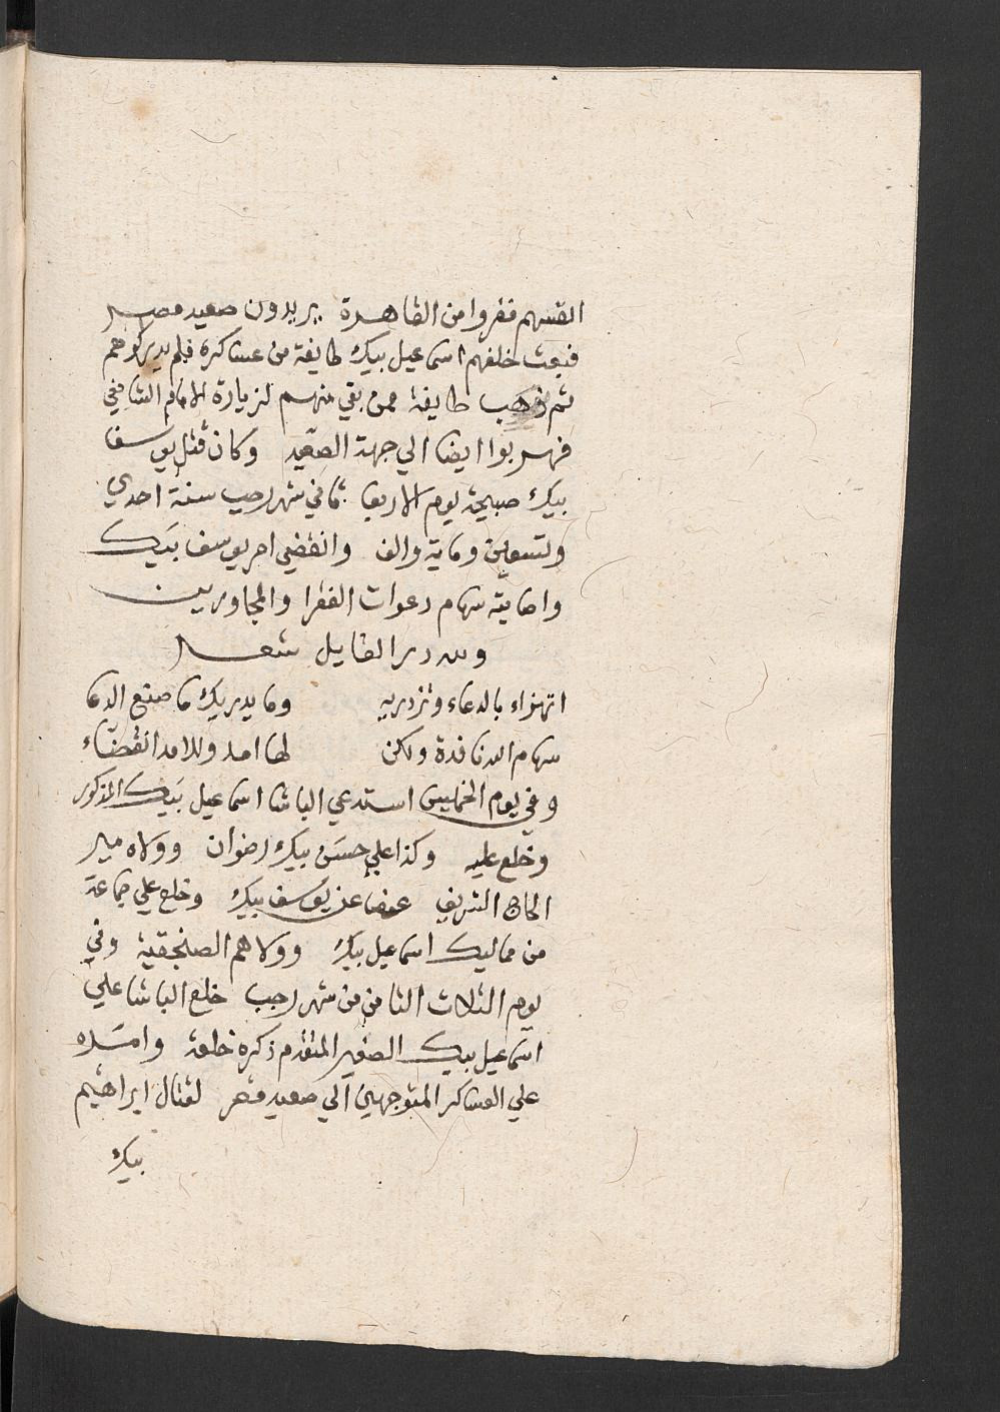 القسهم ففروا من القاهرة يريدون صعيد مصر
فبعث خلفهم اسماعيل بيك طايفة من عساكره فلم يدركوهم
ثم ذهب طايفة ممن بقي منهم لزيارة الامام الشافعي
فهربوا ايضا الي جهة الصعيد وكان قتل يوسف
بيك صبيحة يوم الاربعا ثاني شهر رجب سنة احدي
وتسعين وماية والف وانقضي امر يوسف بيك
واصابته سهام دعوات الفقرا والمجاورين
ولله در القايل شعر
اتهزاء بالدعاء وتزدريه وما يدريك ما صنع الدعا
سهام الله نافدة ولكن لها امد وللامد انقضاء
وفي يوم الخميس استدعي الباشا اسماعيل بيك المذكور
وخلع عليه وكذا علي حسن بيك رضوان وولاه مير
الحاج الشريف عوضا عن يوسف بيك وخلع علي جماعة
من مماليك اسماعيل بيك وولاهم الصنجقية وفي
يوم الثلاث الثامن من شهر رجب خلع الباشا علي
اسماعيل بيك الصغير المتقدم ذكره خلعة وامره
علي العساكر المتوجهين الي صعيد مصر لقتال ابراهيم
بيك